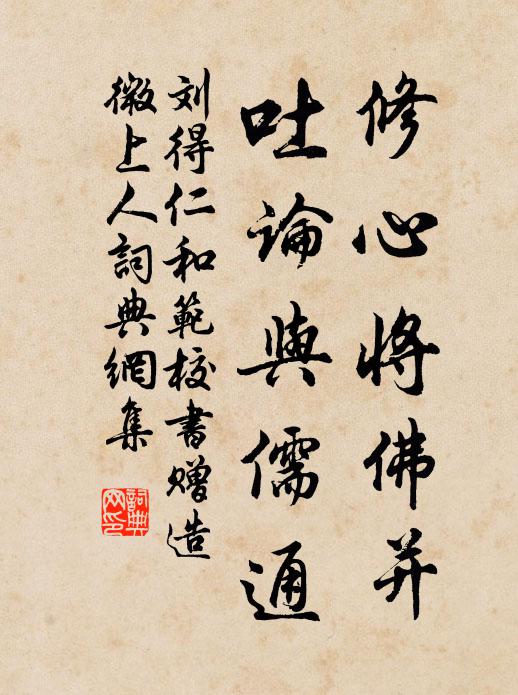 修心將佛并
吐論與儒通
刘得仁和範校書赠造
微上人詞典網集
詞典网印